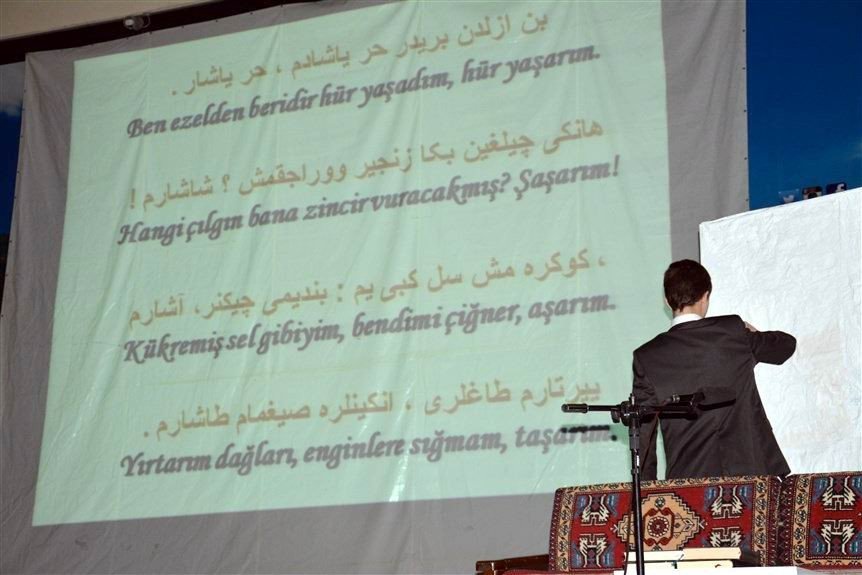 بن ازلدن بريدر حر ياشادم ، حر ياشار .
Ben ezelden beridir hür yaşadım, hür yaşarım.
هانكى چيلغين بكا زنجير ووراجقمش ؟ شاشارم !
Hangi çılgın bana zincir vuracakmış? Şaşarım!
، كوكره مش سل كبى يم : بنديمى چيكنر، آشارم
Kükremiş sel gibiyim, bendimi çiğner, aşarım.
ييرتارم طاغلرى ، انكينلره صيغمام طاشارم .
Yırtarım dağları, enginlere sığmam, taşarım.